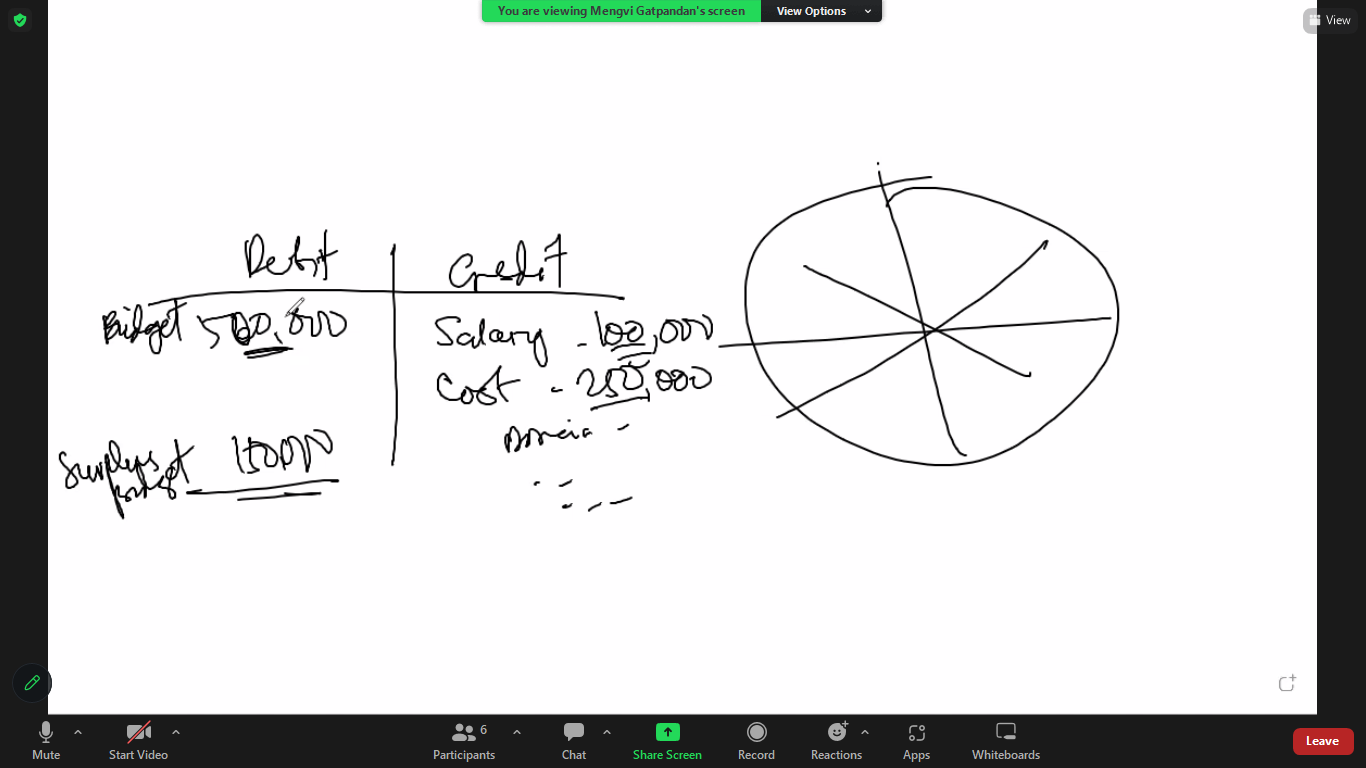 You are viewing Mengvi Gatpandan's screen
View Options
View
Debit
Credit
Budget 500,000
Salary - 100,000
Cost - 250,000
Surplus 150000
Mute
Start Video
Participants
6
Chat
Share Screen
Record
Reactions
Apps
Whiteboards
Leave